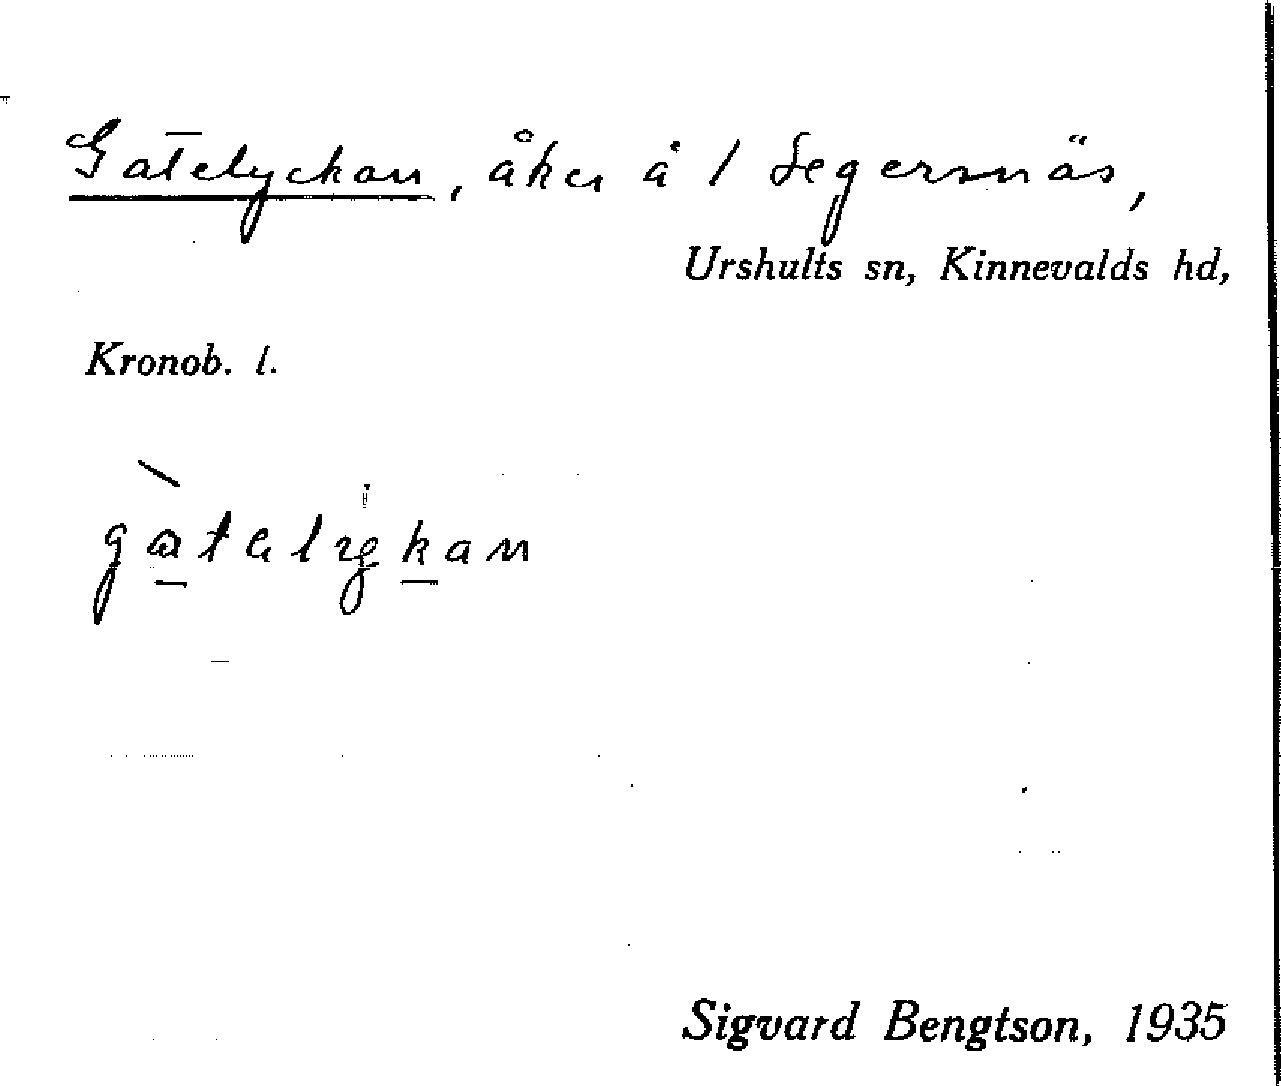 Gatelyckan, åker å 1 Segersnäs,
Urshults sn, Kinnevalds hd,
Kronob. l.
gatalykan
Sigvard Bengtson, 1935